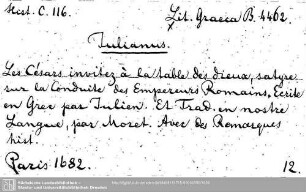 Hist. C. 116.
Lit. Graeca B. 4462.
Julianus.
Les Césars invitez à la table des dieux, satyre
sur la Conduite des Empereurs Romains, Ecrite
en Grec par Julien. Et Trad. en nostre
Langue, par Moret. Avec des Remarques
hist.
Paris 1682. 12.